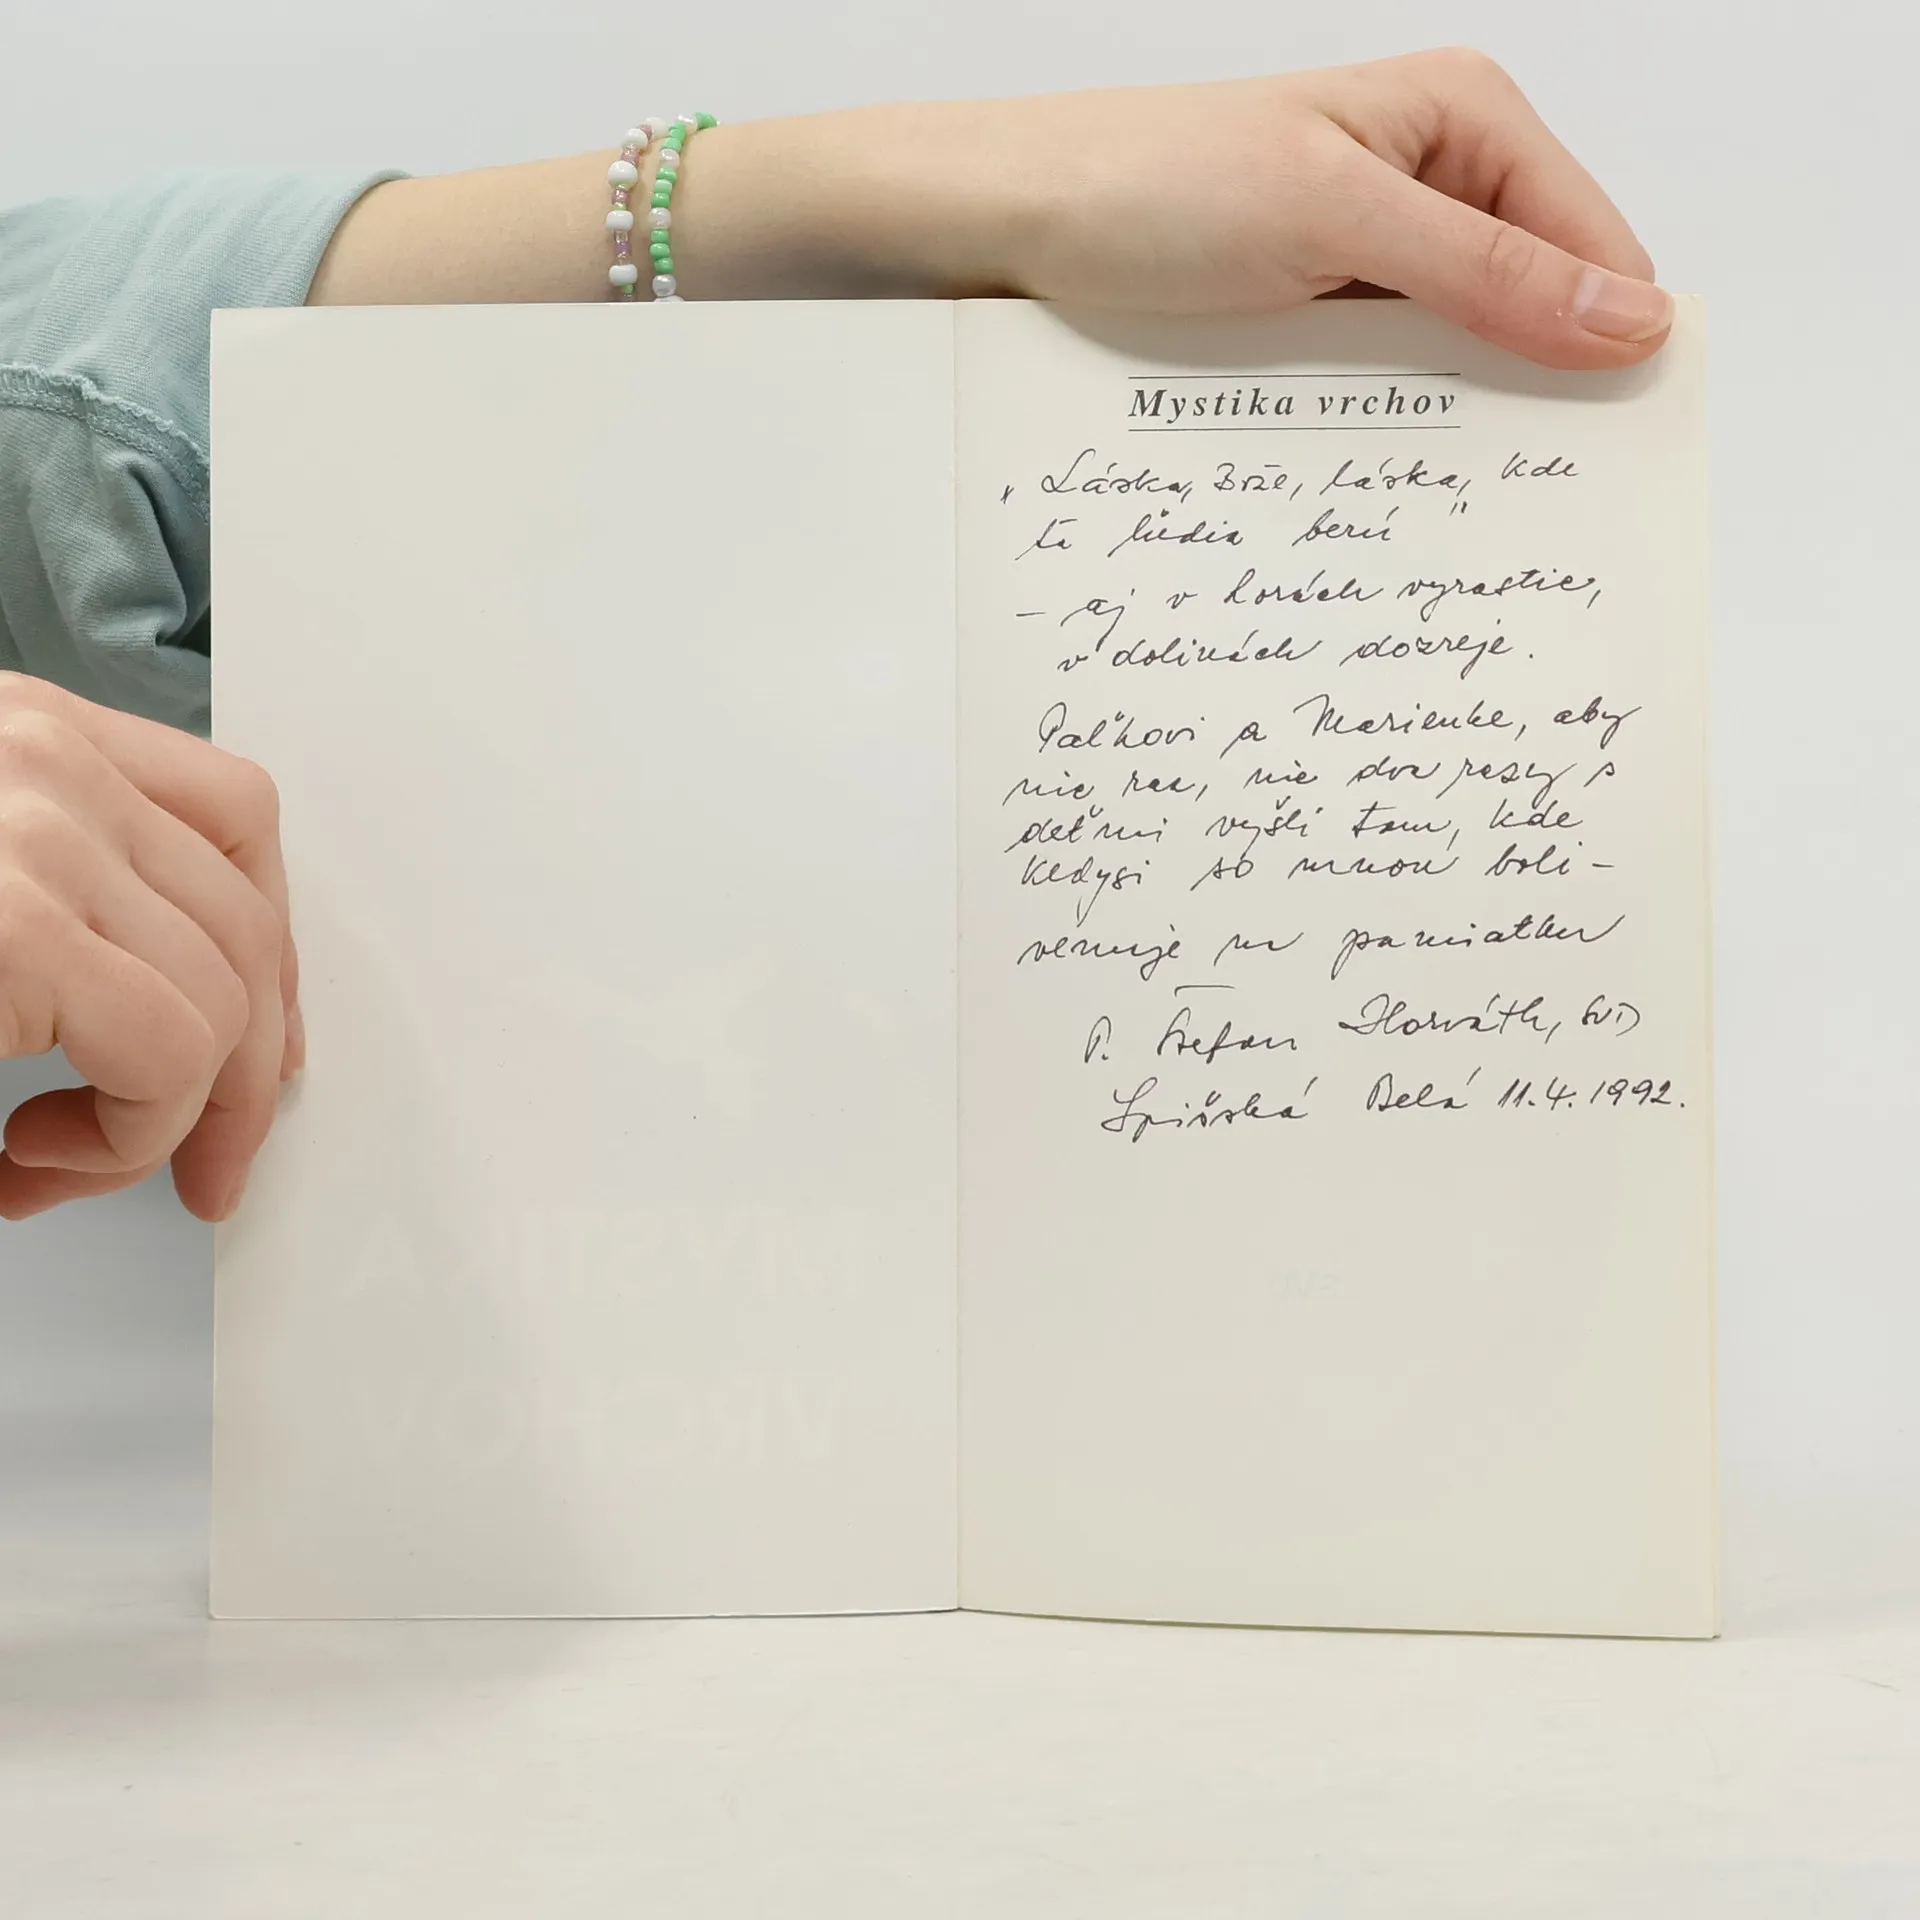 Mystika vrchov
„Láska, Bože, láska, kde
ťa ľudia berú"
– aj v horách vyrastie,
v dolinách dozreje.
Paľkovi a Marienke, aby
nie raz, nie dva razy s
deťmi vyšli tam, kde
kedysi so mnou boli –
venuje na pamiatku
P. Štefan Horváth, SVD
Spišská Belá 11.4.1992.
MYSTIKA
VRCHOV